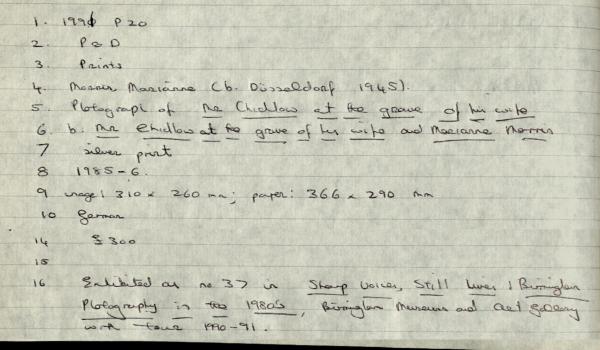 1. 1991 P20
2. P & D
3. Prints
4. Morris Marianne (b. Düsseldorf 1945).
5. Photograph of Mr Chidlow at the grave of his wife
6. b. Mr Chidlow at the grave of his wife and Marianne Morris
7 silver print
8 1985-6.
9 image: 310 x 260 mm; paper: 366 x 290 mm
10 German
14 £300
15
16 Exhibited as no 37 in Sharp Voices, Still Lives: Birmingham
Photography in the 1980s, Birmingham Museum and Art Gallery
with tour 1990-91.